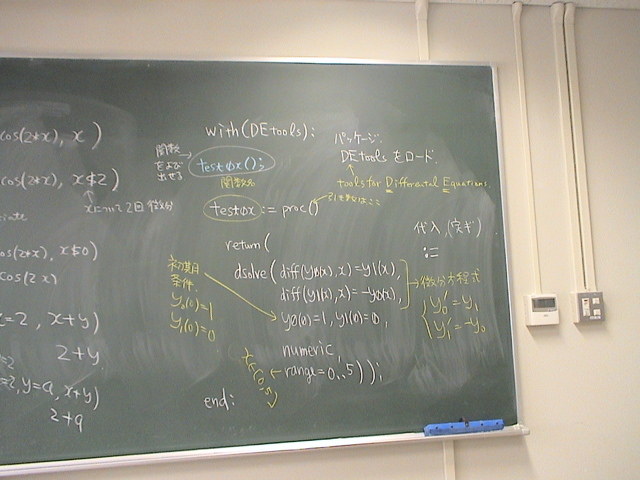 cos(2*x), x)
cos(2*x), x$2)
xについて2回微分
iate
os(2*x), x$0)
cos(2x)
x=2, x+y)
2+y
=2
=2, y=a, x+y)
2+a
with(DEtools):
パッケージ
DEtools をロード.
tools for Differental Equations.
関数
をよび
出せる
test0x();
関数名
test0x := proc()
引き数はここ
代入,(定ギ)
:=
return(
dsolve( diff(y0(x),x)=y1(x),
diff(y1(x),x)=-y0(x),
y0(0)=1, y1(0)=0,
微分方程式
y0'=y1
y1'=-y0
初期
条件.
y0(0)=1
y1(0)=0
numeric,
range=0..5));
x∈(0,5)
end: